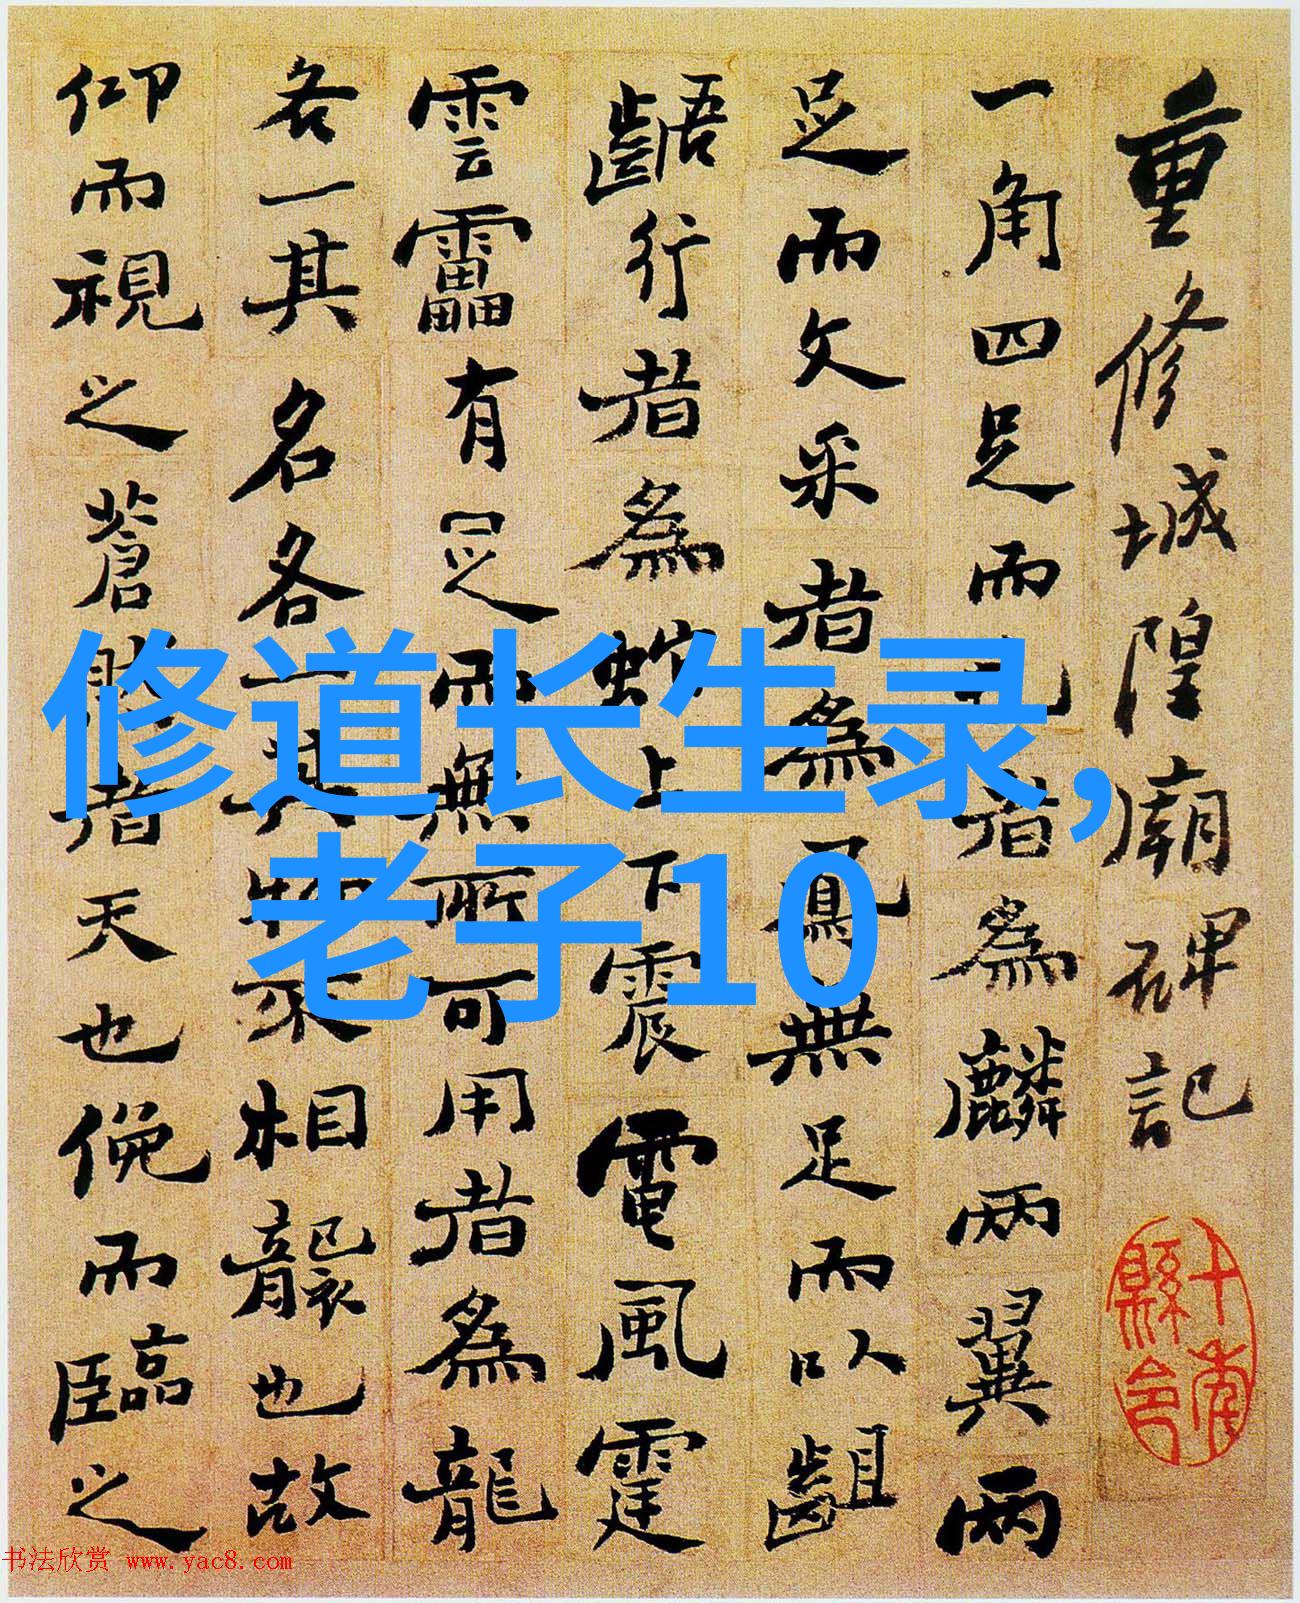 重修城隍廟碑記
一角四足而毛者為麟兩翼兩
足而文采者為鳳無足而以齟
齬行者為蛇上下震電風霆
雲靁有足而無所可用者為龍
各一其名各一其物不相襲也故
仰而視之蒼然者天也俛而臨之
縣令
修道长生录,
老子10
书法欣赏 www.yac8.com